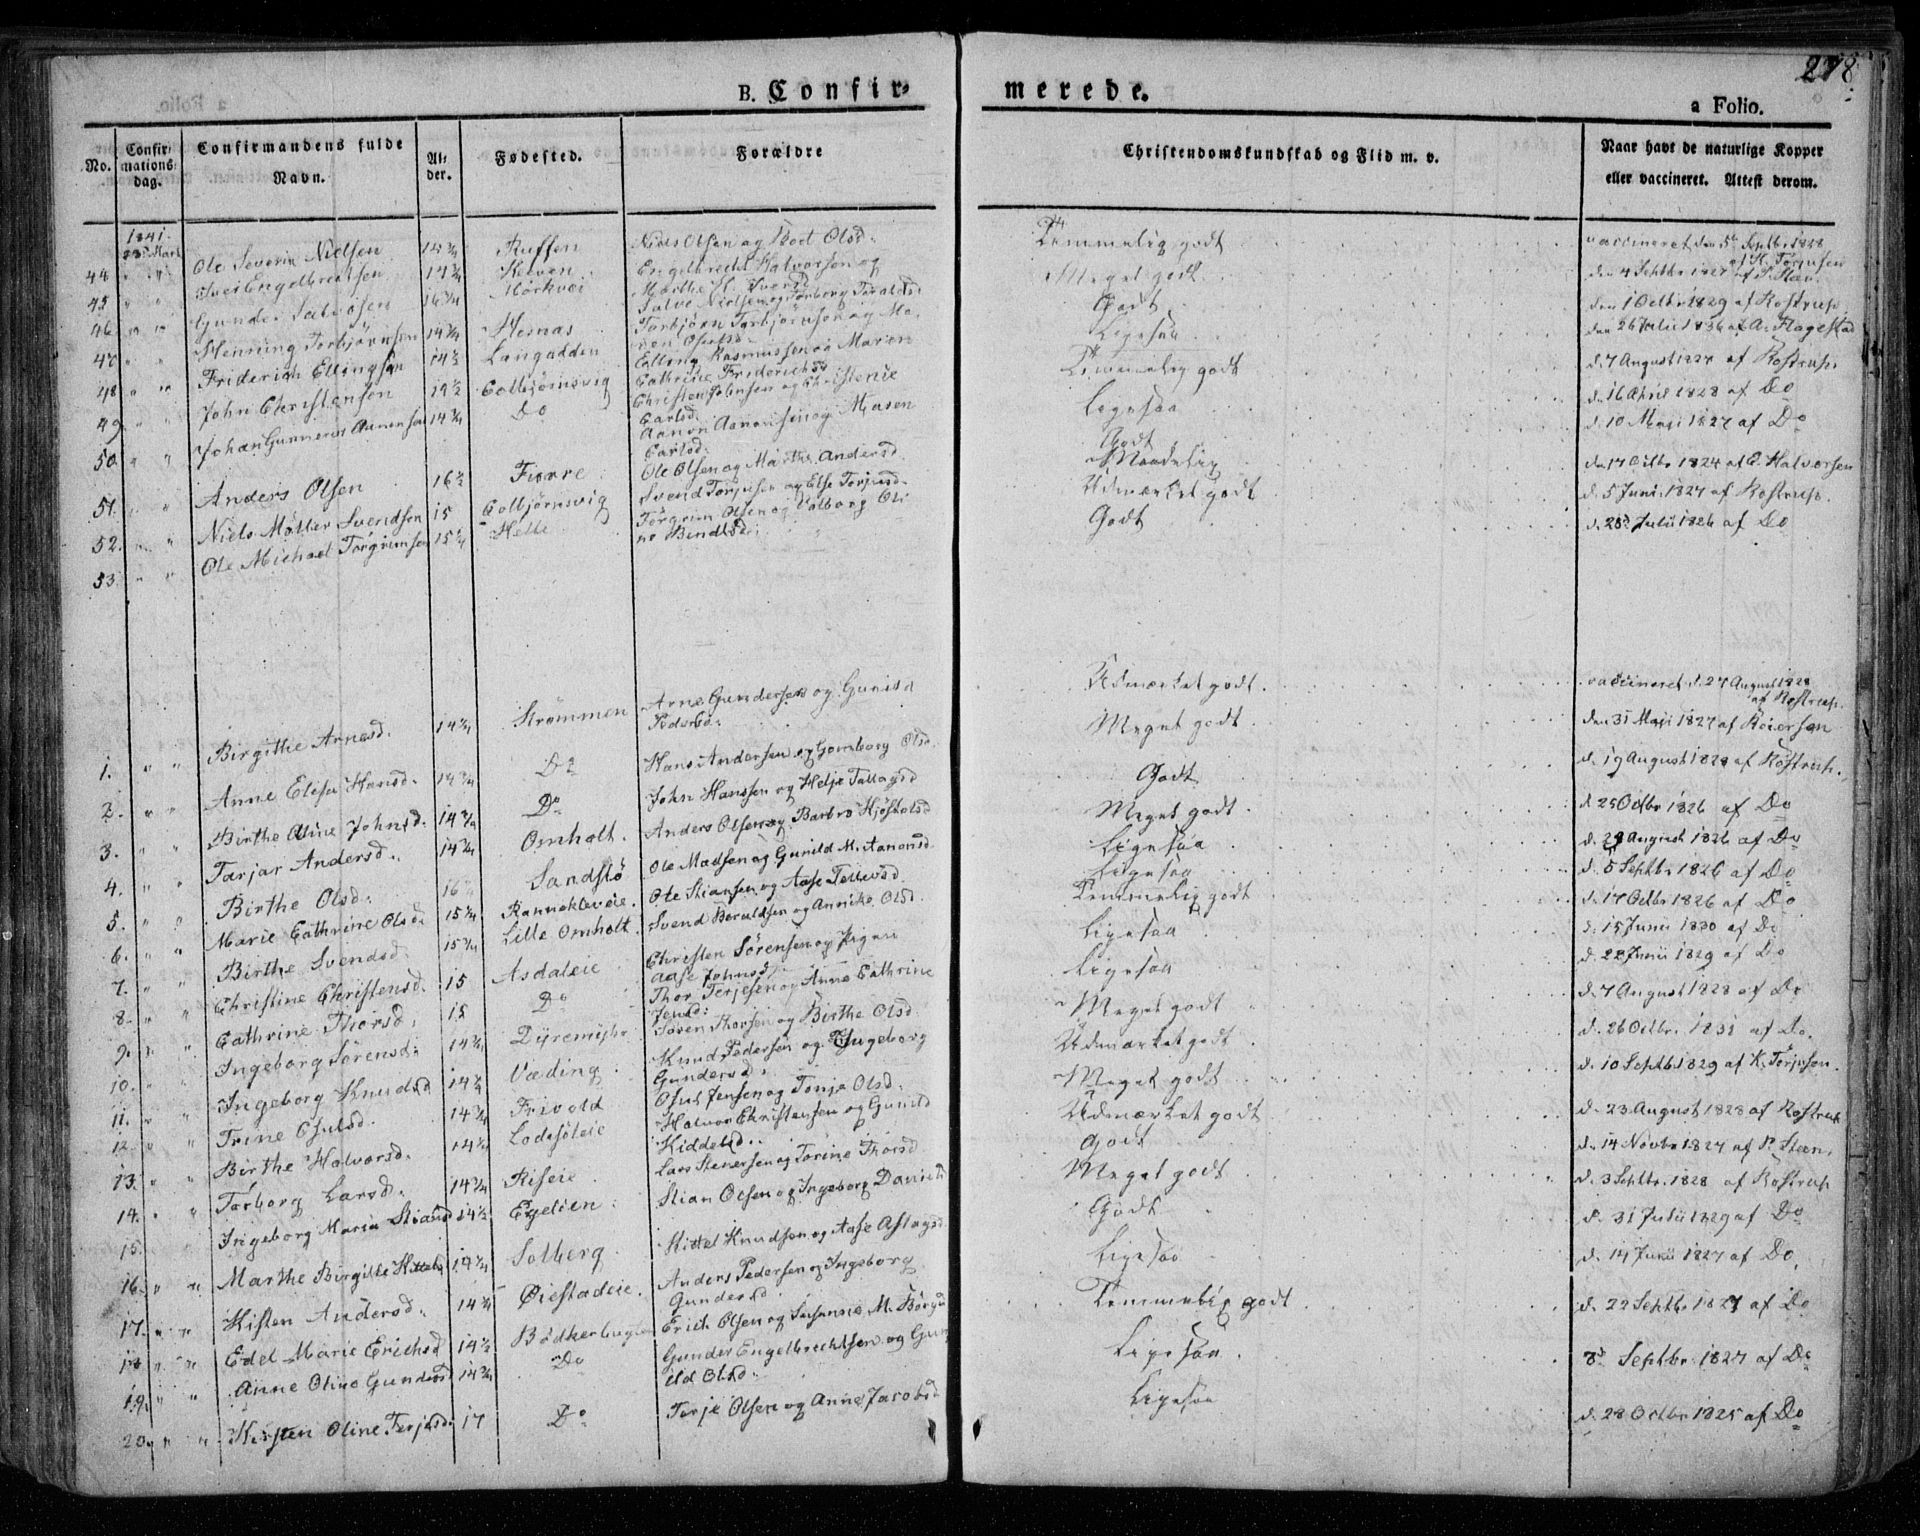 278
B. Confir- merede.
a Folio.
No. Confirmations dag. Confirmandens fulde Navn. Alder. Fødested. Forældre Christendomskundskab og Flid m. v. Naar havt de naturlige Kopper eller vaccineret. Attest derom.
1841.
44 Ole Severin Nielsen 14 3/4 Niels Olsen og Olsd: Temmelig godt vaccineret den 5te Septbr 1828 af K. Torjusen
45 Engelbrechtsen 14 3/4 Engelbrecht Halvorsen og Meget godt den 4 Septbr 1827 af P. Steen
46 Salvesen Salve Nielsen og Torborg Godt den 1 Octbr 1829 af Rostrup
47 Henning Torbjørnsen 14 3/4 Hesnæs Torbjørn Torbjørnsen og Ma- Ligesaa den 26 Julii 1836 af A. Flagestad
48 Friderich Ellingsen 14 1/2 Elling Rasmussen og Maren Cathrine Friderichsd Temmelig godt d. 7 August 1827 af Rostrup
49 John Christensen 19 1/2 Colbjørnsvig Christen Johnsen og Christenie Carlsd: Ligesaa d. 16 April 1828 af Do
50 Johan Gunnerus Aanensen 14 3/4 Do Aanon Aanonsen og Maren Carlsd: Godt d. 10 Maji 1827 af Do
51. Anders Olsen 16 1/2 Ole Olsen og Marthe Andersd Maadelig den 17 Octbr 1824 af C. Halvorsen
52. Niels Møller Svendsen 15 Colbjørnsvig Svend Torjusen og Else Torjusd: Udmærket godt d. 5 Junii 1827 af Rostrup.
53 Ole Michael Torgrimsen 15 1/4 Helle Torgrim Olsen og Valborg Oli- Godt d. 28 Julii 1826 af Do
1. Birgithe Arnesd. 14 3/4 Strømmen Arne Gundersen og Gunild Udmærket godt. vaccineret d. 27 August 1828 af Rostrup.
2. Anne Elisa Hansd. 14 3/4 Do Hans Andersen og Gomborg Olsd. Meget godt den 31 Maji 1827 af
3. Birthe Oline Johnsd. 14 3/4 Do John Hanssen og Helje Tellagsd Godt d. 19 August 1828 af Rostrup.
4. Tarjer Andersd. 14 3/4 Omholt. Anders Olsen og Barbro Meget godt. d. 25 Octbr 1826 af Do
5. Birthe Olsd. 16 Sandstø Ole Madsen og Gunild M. Aanonsd Ligesaa d. August 1826 af Do
6. Marie Cathrine Olsd. 15 3/4 Ranneklevéie. Ole Stiansen og Aase Tellevsd. Ligesaa d. 5 Septbr 1826 af Do
7. Birthe Svendsd: 15 3/4 Lille Omholt. Svend Beruldsen og Annike Olsd. Temmelig godt d. 17 Octbr 1826 af Do.
8. Christine Christensd. 15 Asdaleie Christen Sørensen og Aase Johnsd Ligesaa d. 15 Junii 1830 af Do
9. Cathrine Thorsd. 15 Do Thor Terjesen og Anne Cathrine Jensd: Ligesaa d. 22 Junii 1829 af Do
10. Ingeborg Sørensd: 14 3/4 Dyremyhr Søren Thorsen og Birthe Olsd. Meget godt d. 7 August 1828 af Do
11. Ingeborg Knudsd 14 1/4 Væding Knud Pedersen og Ingeborg Gundersd: Udmærket godt d. 26 Octbr. 1831 af Do.
12 Trine Osulsd. 14 3/4 Frivold Osul Jensen og Tonje Olsd: Meget godt d. 10 Septbr 1829 af K. Torjusen.
13. Birthe Halvorsd. 14 1/4 Lodesøleie Halvor Christensen og Gunild Kiddelsd. Udmærket godt d. 23 August 1828 af Rostrup
14. Torborg Larsd. 14 3/4 Riseie Lars Stenersen og Torine Thorsd Godt d. 14 Novbr 1827 af P. Steen
15. Ingeborg Maria Stiansd 14 1/2 Egelien Stian Olsen og Ingeborg Davidsd Meget godt d. 3 Septbr. 1828 af Rostrup
16. Marthe Birgitte Kittelsd 14 3/4 Solberg Kittel Knudsen og Aase Aslagsd Godt d. 31 Julii 1829 af Do
17. Kisten Andersd. 14 3/4 Øiestadeie. Anders Pedersen og Ingeborg Gundersd. Ligesaa d. 14 Junii 1827 af Do.
18. Edel Marie Erichsd 14 1/2 Bødkerbugten Erich Olsen og Susanne M. Temmelig godt d. 22 Septbr 1827 af Do
19. Anne Oline Gundersd 14 3/4 Do Gunder Engelbrechtsen og Gunild Olsd: Ligesaa 8d Septbr 1827 af Do
20. Kirsten Oline Terjesd. 17 Do Terje Olsen og Anne Jacobsd Ligesaa d. 28 Octbr 1825 af Do